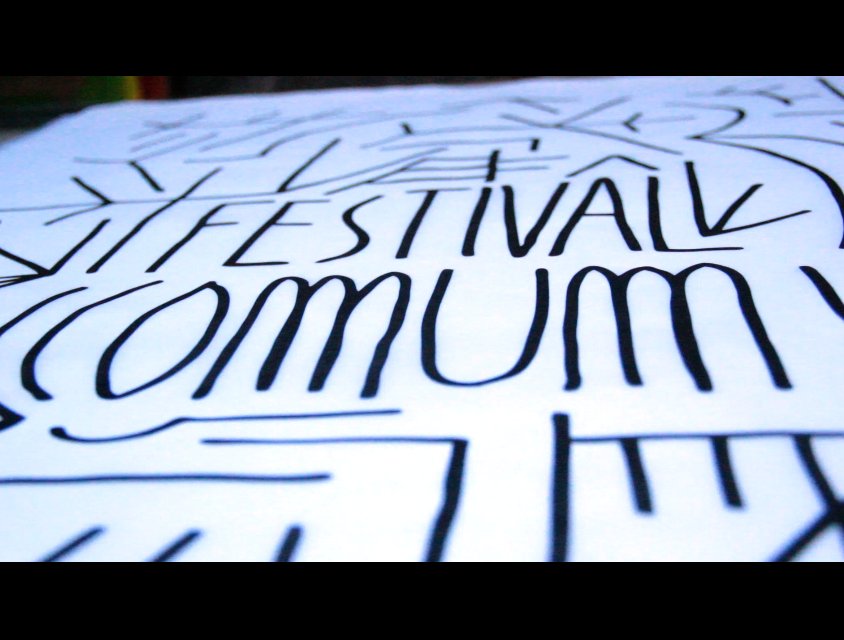 FESTIVAL
COMUM